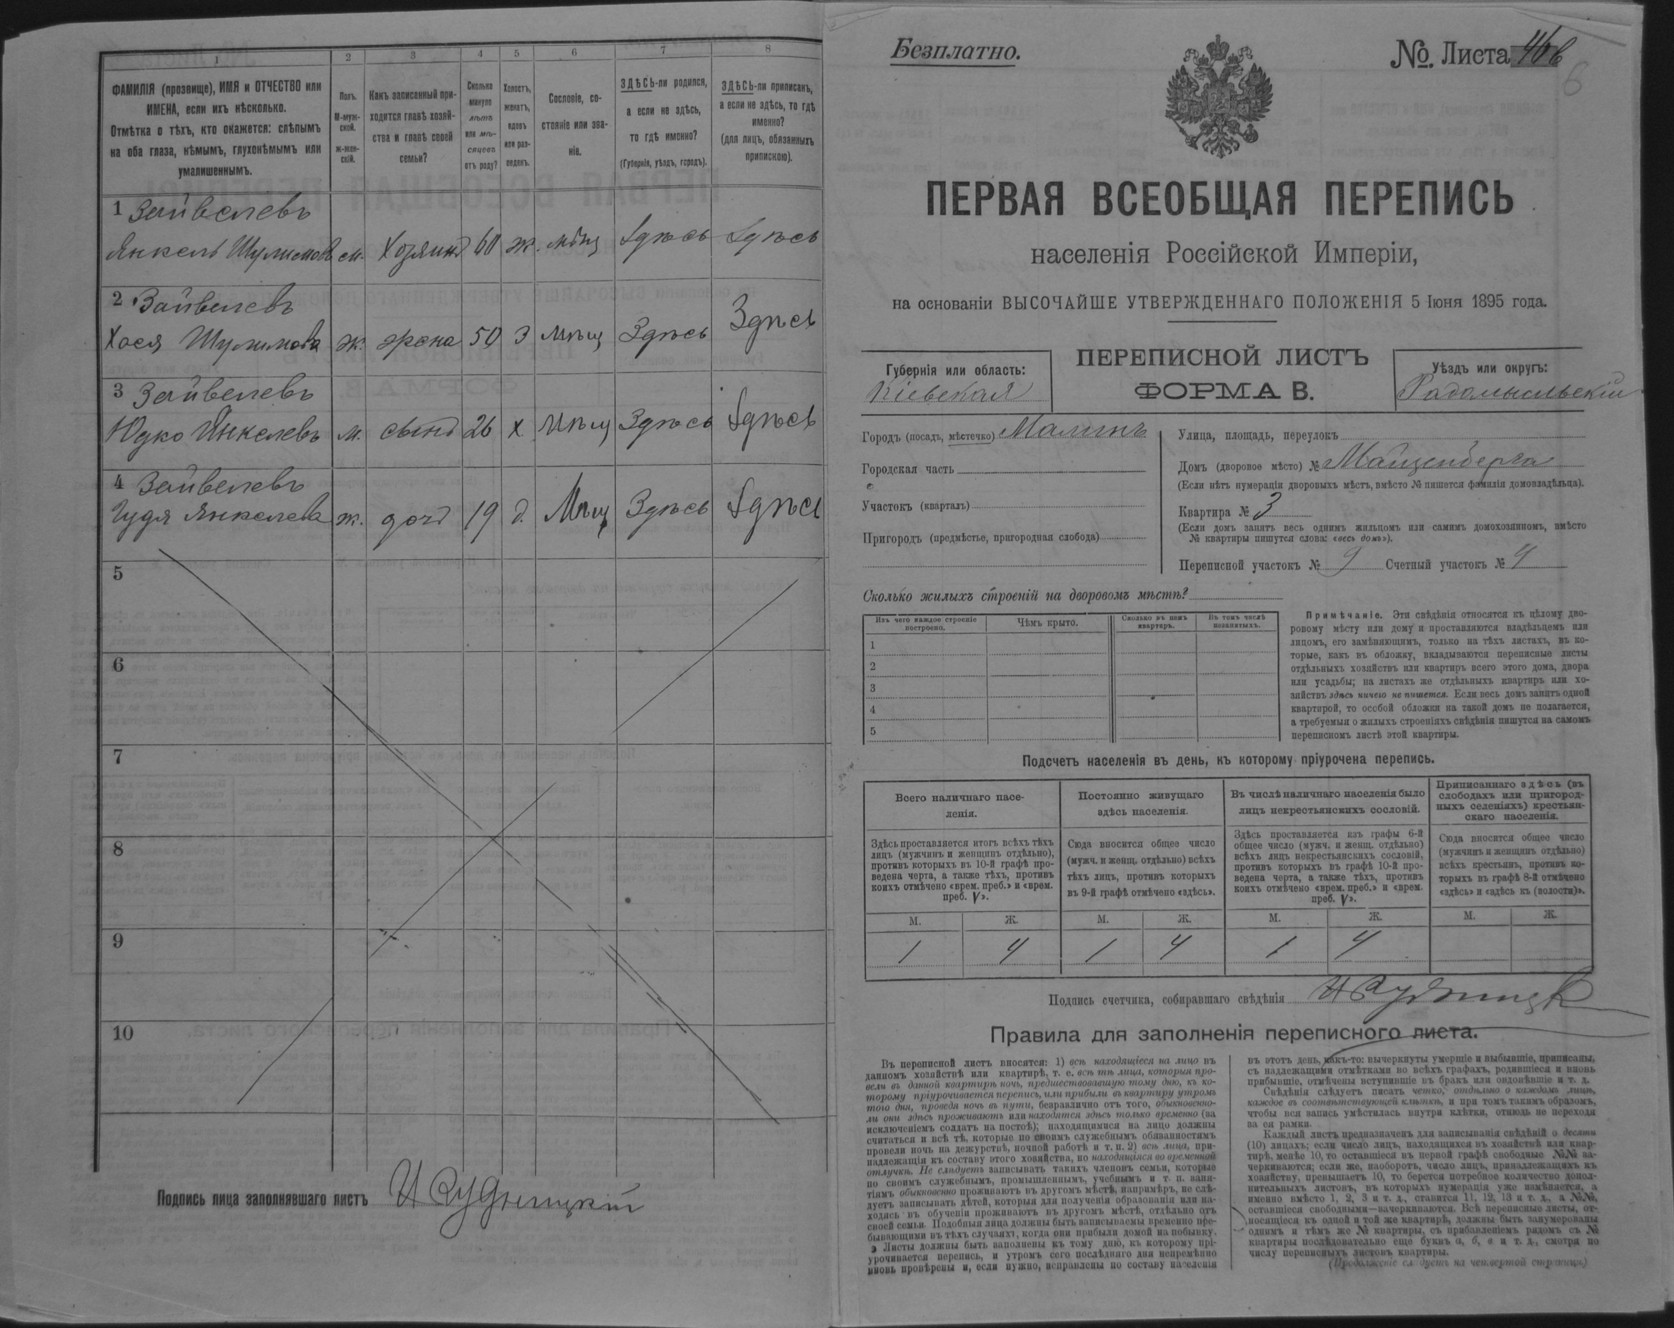 1
2
3
4
5
6
7
8
ФАМИЛІЯ (прозвище), ИМЯ и ОТЧЕСТВО или
ИМЕНА, если ихъ нѣсколько.
Отмѣтка о тѣхъ, кто окажется: слѣпымъ
на оба глаза, нѣмымъ, глухонѣмымъ или
умалишеннымъ.
Полъ.
М-муж-
ской.
Ж-жен-
скій.
Какъ записанный при-
ходится главѣ хозяй-
ства и главѣ своей
семьи?
Сколько
минуло
лѣтъ
или мѣ-
сяцевъ
отъ роду?
Холостъ,
женатъ,
вдовъ
или раз-
веденъ.
Сословіе, со-
стояніе или зва-
ніе.
ЗДѢСЬ-ли родился,
а если не здѣсь,
то гдѣ именно?
(Губернія, уѣздъ, городъ).
ЗДѢСЬ-ли приписанъ,
а если не здѣсь, то гдѣ
именно?
(для лицъ, обязанныхъ
припискою).
1 Зайвелевъ
Янкель Шулимовъ м. Хозяинъ 60 ж. мѣщ Здѣсь Здѣсь
2 Зайвелевъ
Хася Шулимова ж. жена 50 З мѣщ Здѣсь Здѣсь
3 Зайвелевъ
Юдко Янкелевъ м. сынъ 26 х Мѣщ Здѣсь Здѣсь
4 Зайвелевъ
Гудя Янкелева ж. дочь 19 д. Мѣщ Здѣсь Здѣсь
5
6
7
8
9
10
Подпись лица заполнявшаго листъ И Рудницкій
Безплатно.
№. Листа 46в
6
ПЕРВАЯ ВСЕОБЩАЯ ПЕРЕПИСЬ
населенія Россійской Имперіи,
на основаніи ВЫСОЧАЙШЕ УТВЕРЖДЕННАГО ПОЛОЖЕНІЯ 5 Іюня 1895 года.
Губернія или область:
Кіевская
ПЕРЕПИСНОЙ ЛИСТЪ
ФОРМА В.
Уѣздъ или округъ:
Радомысльскій
Городъ (посадъ, мѣстечко) Малинъ
Городская часть
Участокъ (кварталъ)
Пригородъ (предмѣстье, пригородная слобода)
Улица, площадь, переулокъ
Домъ (дворовое мѣсто) № Майзенберга
(Если нѣтъ нумераціи дворовыхъ мѣстъ, вмѣсто № пишется фамилія домовладѣльца).
Квартира № 3
(Если домъ занятъ весь однимъ жильцомъ или самимъ домохозяиномъ, вмѣсто
№ квартиры пишутся слова: «весь домъ»).
Переписной участокъ № 9 Счетный участокъ № 4
Сколько жилыхъ строеній на дворовомъ мѣстѣ?
Изъ чего каждое строеніе
построено.
Чѣмъ крыто.
Сколько въ немъ
квартиръ.
Въ томъ числѣ
незанятыхъ.
1
2
3
4
5
Примѣчаніе. Эти свѣдѣнія относятся къ цѣлому дво-
ровому мѣсту или дому и проставляются владѣльцемъ или
лицомъ, его замѣняющимъ, только на тѣхъ листахъ, въ ко-
торые, какъ въ обложку, вкладываются переписные листы
отдѣльныхъ хозяйствъ или квартиръ всего этого дома, двора
или усадьбы; на листахъ же отдѣльныхъ квартиръ или хо-
зяйствъ здѣсь ничего не пишется. Если весь домъ занятъ одной
квартирой, то особой обложки на такой домъ не полагается,
а требуемыя о жилыхъ строеніяхъ свѣдѣнія пишутся на самомъ
переписномъ листѣ этой квартиры.
Подсчетъ населенія въ день, къ которому пріурочена перепись.
Всего наличнаго насе-
ленія.
Постоянно живущаго
здѣсь населенія.
Въ числѣ наличнаго населенія было
лицъ некрестьянскихъ сословій.
Приписаннаго здѣсь (въ
слободахъ или пригород-
ныхъ селеніяхъ) крестьян-
скаго населенія.
Здѣсь проставляется итогъ всѣхъ тѣхъ
лицъ (мужчинъ и женщинъ отдѣльно),
противъ которыхъ въ 10-й графѣ про-
ведена черта, а также тѣхъ, противъ
коихъ отмѣчено «врем. преб.» и «врем.
преб. V».
Сюда вносится общее число
(мужч. и женщ. отдѣльно) всѣхъ
тѣхъ лицъ, противъ которыхъ
въ 9-й графѣ отмѣчено «здѣсь».
Здѣсь проставляется изъ графы 6-й
общее число (мужч. и женщ. отдѣльно)
всѣхъ лицъ некрестьянскихъ сословій,
противъ которыхъ въ графѣ 10-й про-
ведена черта, а также тѣхъ, противъ
коихъ отмѣчено «врем. преб.» и «врем.
преб. V».
Сюда вносится общее число
(мужчинъ и женщинъ отдѣльно)
всѣхъ крестьянъ, противъ ко-
торыхъ въ графѣ 8-й отмѣчено
«здѣсь» и «здѣсь къ (волости)».
М. Ж. М. Ж. М. Ж. М. Ж.
1 4 1 4 1 4
Подпись счетчика, собиравшаго свѣдѣнія И Рудницкій
Правила для заполненія переписного листа.
Въ переписной листъ вносятся: 1) всѣ находящіеся на лицо въ
данномъ хозяйствѣ или квартирѣ, т. е. всѣ тѣ лица, которыя про-
вели въ данной квартирѣ ночь, предшествовавшую тому дню, къ ко-
торому пріурочивается перепись, или прибыли въ квартиру утромъ
того дня, проведя ночь въ пути, безразлично отъ того, обыкновенно-
ли они здѣсь проживаютъ или находятся здѣсь только временно (за
исключеніемъ солдатъ на постоѣ); находящимися на лицо должны
считаться и всѣ тѣ, которые по своимъ служебнымъ обязанностямъ
провели ночь на дежурствѣ, ночной работѣ и т. п. 2) всѣ лица, при-
надлежащія къ составу этого хозяйства, но находящіяся во временной
отлучкѣ. Не слѣдуетъ записывать такихъ членовъ семьи, которые
по своимъ служебнымъ, промышленнымъ, учебнымъ и т. п. заня-
тіямъ обыкновенно проживаютъ въ другомъ мѣстѣ, напримѣръ, не слѣ-
дуетъ записывать дѣтей, которыя для полученія образованія или на-
ходясь въ обученіи проживаютъ въ другомъ мѣстѣ, отдѣльно отъ
своей семьи. Подобныя лица должны быть записываемы временно пре-
бывающими въ тѣхъ случаяхъ, когда они прибыли домой на побывку.
Листы должны быть заполнены къ тому дню, къ которому прі-
урочивается перепись, и утромъ сего послѣдняго дня непремѣнно
вновь провѣрены и, если нужно, исправлены по составу населенія
въ этотъ день, какъ-то: вычеркнуты умершіе и выбывшіе, приписаны,
съ надлежащими отмѣтками во всѣхъ графахъ, родившіеся и вновь
прибывшіе, отмѣчены вступившіе въ бракъ или овдовѣвшіе и т. д.
Свѣдѣнія слѣдуетъ писать четко, отдѣльно о каждомъ лицѣ,
каждое въ соотвѣтствующей клѣткѣ, и при томъ такимъ образомъ,
чтобы вся запись умѣстилась внутри клѣтки, отнюдь не переходя
за ея рамки.
Каждый листъ предназначенъ для записыванія свѣдѣній о десяти
(10) лицахъ; если число лицъ, находящихся въ хозяйствѣ или квар-
тирѣ, менѣе 10, то оставшіеся въ первой графѣ свободные №№ за-
черкиваются; если же, наоборотъ, число лицъ, принадлежащихъ къ
хозяйству, превышаетъ 10, то берется потребное количество допол-
нительныхъ листовъ, въ которыхъ нумерація уже измѣняется, а
именно вмѣсто 1, 2, 3 и т. д., ставится 11, 12, 13 и т. д., а №№,
оставшіеся свободными—зачеркиваются. Всѣ переписные листы, от-
носящіеся къ одной и той же квартирѣ, должны быть занумерованы
однимъ и тѣмъ же № квартиры, съ прибавленіемъ рядомъ съ №
квартиры послѣдовательно еще буквъ а, б, в и т. д., смотря по
числу переписныхъ листовъ квартиры.
(Продолженіе слѣдуетъ на четвертой страницѣ)